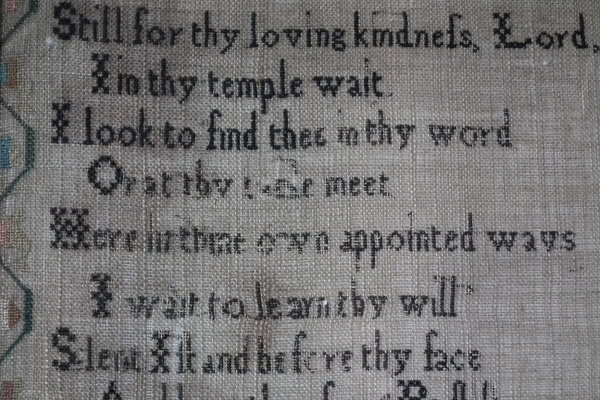 Still for thy loving kindneſs, Lord,
I in thy temple wait
I look to find thee in thy word
Or at thy table meet
Here in thine own appointed ways
I wait to learn thy will
Silent I sit and before thy face